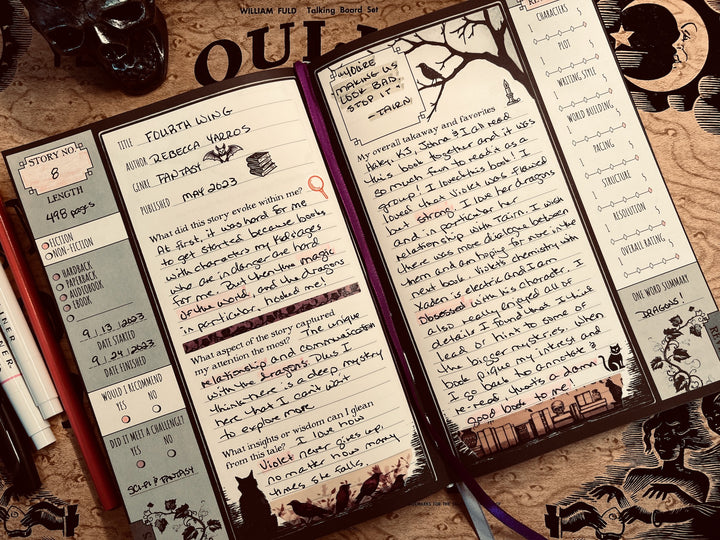 WILLIAM FULD Talking Board Set
OUI
STORY NO.
8
LENGTH
498 pages
FICTION
NON-FICTION
HARDBACK
PAPERBACK
AUDIOBOOK
EBOOK
9/13/2023
DATE STARTED
9/24/2023
DATE FINISHED
WOULD I RECOMMEND
YES NO
DID IT MEET A CHALLENGE?
YES NO
SCI-FI & FANTASY
TITLE FOURTH WING
AUTHOR REBECCA YARROS
GENRE FANTASY
PUBLISHED MAY 2023
What did this story evoke within me?
At first, it was hard for me
to get started because books
with characters my kid's ages
who are in danger are hard
for me. But when the magic
of the world, and the dragons
in particular, hooked me!
What aspect of the story captured
my attention the most? The unique
relationship and communication
with the dragons. Plus I
think there is a deep mystery
here that I can't wait
to explore more
What insights or wisdom can I glean
from this tale? I love how
Violet never gives up,
no matter how many
times she falls.
"YOU'RE
MAKING US
LOOK BAD.
STOP IT."
-TAIRN
My overall takeaway and favorites
Haley, KJ, Johna & I all read
this book together and it was
so much fun to read it as a
group! I loved this book! I
loved that Violet was flawed
but strong. I love her dragons
and in particular her
relationship with Tairn. I wish
there was more dialogue between
them and am hoping for more in the
next book. Violet's chemistry with
Xaden is electric and I am
obsessed with his character. I
also really enjoyed all of
details I found that I that
lead or hint to some of
the bigger mysteries. When
a book pique my interest and
I go back to annotate &
re-read, that's a damn
good book to me!
CHARACTERS
5
PLOT
5
WRITING STYLE
5
WORLD BUILDING
5
PACING
5
STRUCTURE
5
RESOLUTION
5
OVERALL RATING
5
ONE WORD SUMMARY
DRAGONS!